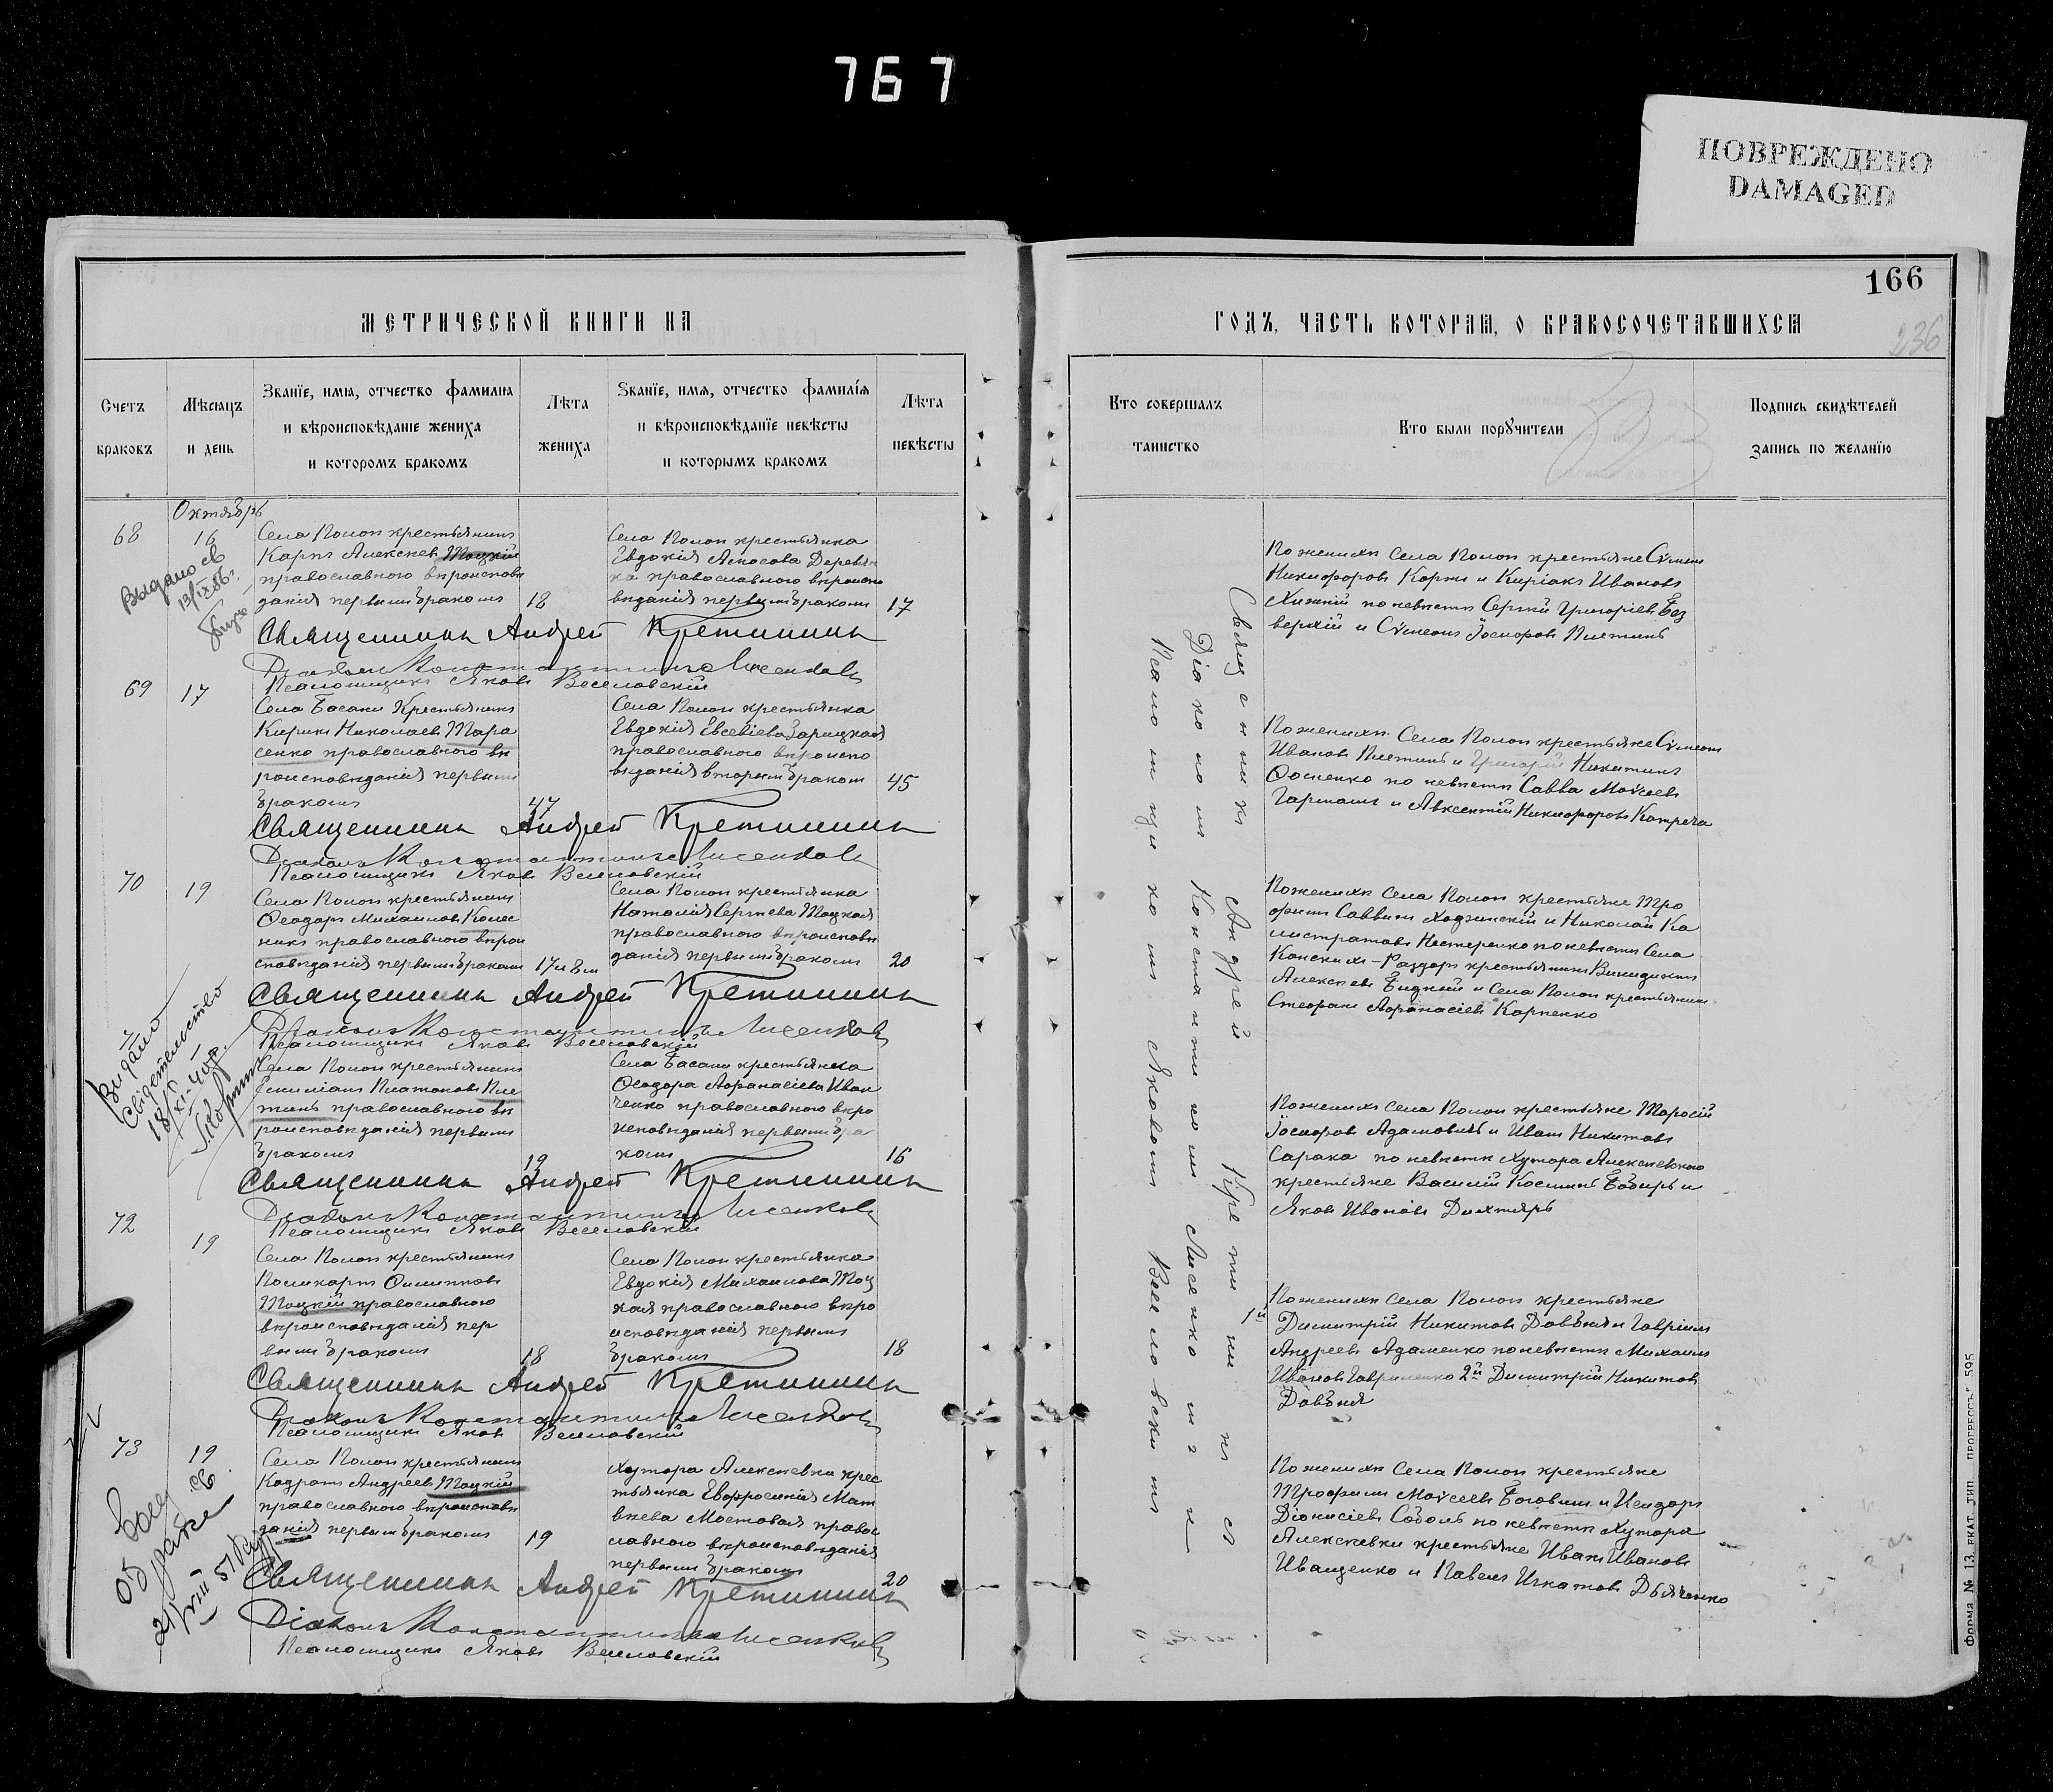 767
ПОВРЕЖДЕНО
DAMAGED
166
236
МЕТРИЧЕСКОЙ КНИГИ НА
ГОДЪ, ЧАСТЬ ВТОРАЯ, О БРАКОСОЧЕТАВШИХСЯ
Счетъ браковъ
Мѣсяцъ и день
Званїе, имя, отчество фамилиа
и вѣроисповѣданїе жениха
и которомъ бракомъ
Лѣта жениха
Званїе, имя, отчество фамилїя
и вѣроисповѣданїе невѣсты
и которымъ бракомъ
Лѣта невѣсты
Кто совершалъ таинство
Кто были порꙋчители
Подпись свидѣтелей
запись по желанїю
Октябрь
68
16
Села Попом крестьянинъ
Карпъ Алексѣевъ Тоцкій
православнаго вѣроисповѣ
данія первымъ бракомъ
18
Села Попом крестьянка
Евдокія Деревян
ка православнаго вѣроиспо
вѣданія первымъ бракомъ
17
Священникъ Андрей Кретининъ
Діаконъ Константинъ Лисенковъ
Псаломщикъ Яковъ Веселовскій
По женихѣ Села Попом крестьяне Сѵмеонъ
Никифоровъ Коржъ и Киріакъ Ивановъ
Хижній по невѣстѣ Сергѣй Григоріевъ Без
верхій и Сѵмеонъ Іосифовъ Плетинь
69
17
Села Басани Крестьянинъ
Кирикъ Николаевъ Тара
сенко православнаго вѣ
роисповѣданія первымъ
бракомъ
47
Села Попом крестьянка
Евдокія Евсевіева Зарицкая
православнаго вѣроиспо
вѣданія вторымъ бракомъ
45
Священникъ Андрей Кретининъ
Діаконъ Константинъ Лисенковъ
Псаломщикъ Яковъ Веселовскій
По женихѣ Села Попом крестьяне Сѵмеонъ
Ивановъ Плетинь и Григорій Никитинъ
Фоменко по невѣстѣ Савва Моѵсеевъ
Гармашъ и Авксентій Никифоровъ Котреча
70
19
Села Попом крестьянинъ
Ѳеодоръ Михаиловъ Колес
никъ православнаго вѣрои
сповѣданія первымъ бракомъ
17 и 8 м
Села Попом крестьянка
Наталія Сергѣева Тоцкая
православнаго вѣроисповѣ
данія первымъ бракомъ
20
Священникъ Андрей Кретининъ
Діаконъ Константинъ Лисенковъ
Псаломщикъ Яковъ Веселовскій
По женихѣ Села Попом крестьяне Тро
фимъ Саввинъ Ходзинскій и Николай Ка
листратовъ Нестеренко по невѣстѣ Села
Конскихъ-Раздоръ крестьянинъ
Алексѣевъ Бидкій и Села Попом крестьянинъ
Стефанъ Афанасіевъ Карпенко
Села Попом крестьянинъ
Емиліанъ Платоновъ Пле
тинь православнаго вѣ
роисповѣданія первымъ
бракомъ
19
Села Басани крестьянка
Ѳеодора Афанасіева Иван
ченко православнаго вѣро
исповѣданія первымъ бра
комъ
16
Священникъ Андрей Кретининъ
Діаконъ Константинъ Лисенковъ
Псаломщикъ Яковъ Веселовскій
По женихѣ Села Попом крестьяне Тарасій
Іосифовъ Адамовичъ и Иванъ Никитовъ
Сарака по невѣстѣ Хутора Алексѣевскаго
крестьяне Василій Косминъ Бобырь и
Яковъ Ивановъ Дихтярь
72
19
Села Попом крестьянинъ
Поликарпъ Филипповъ
Тоцкій православнаго
вѣроисповѣданія пер
вымъ бракомъ
18
Села Попом крестьянка
Евдокія Михаилова Тоц
кая православнаго вѣро
исповѣданія первымъ
бракомъ
18
Священникъ Андрей Кретининъ
Діаконъ Константинъ Лисенковъ
Псаломщикъ Яковъ Веселовскій
По женихѣ Села Попом крестьяне
1й Димитрій Никитовъ Довбня и Гавріилъ
Андреевъ Адаменко по невѣстѣ Михаилъ
Ивановъ Гавриленко 2й Димитрій Никитовъ
Довбня
73
19
Села Попом крестьянинъ
Кодратъ Андреевъ Тоцкій
православнаго вѣроисповѣ
данія первымъ бракомъ
19
Хутора Алексѣевки крес
тьянка Евфросинія Мат
вѣева Мостовая правос
лавнаго вѣроисповѣданія
первымъ бракомъ
20
Священникъ Андрей Кретининъ
Діаконъ Константинъ Лисенковъ
Псаломщикъ Яковъ Веселовскій
По женихѣ Села Попом крестьяне
Трофимъ Моѵсеевъ и Исидоръ
Діонисіевъ Соболь по невѣстѣ Хутора
Алексѣевки крестьяне Иванъ Ивановъ
Иващенко и Павелъ Игнатовъ Дьяченко
Священникъ Андрей Кретининъ съ
Діакономъ Константиномъ Лисенковымъ и
Псаломщикомъ Яковомъ Веселовскимъ
Выдано св
Видано
Свідетельство
18/XI-40р.
об браке
Форма № 13 ЕКАТ. ТИП. ПРОГРЕССЪ" 595